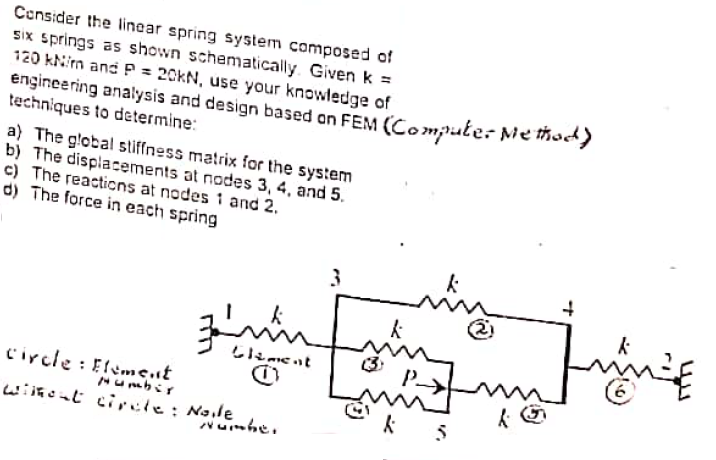 Consider the linear spring system composed of
six springs as shown schematically. Given k =
120 kN/m and P = 20kN, use your knowledge of
engineering analysis and design based on FEM (Computer Method)
techniques to determine:
a) The global stiffness matrix for the system
b) The displacements at nodes 3, 4, and 5.
c) The reactions at nodes 1 and 2.
d) The force in each spring
3
k
4
1
k
2
k
k
2
Element
1
3
P
6
circle : Element
Number
4
k
5
k
5
without circle : Node
Number